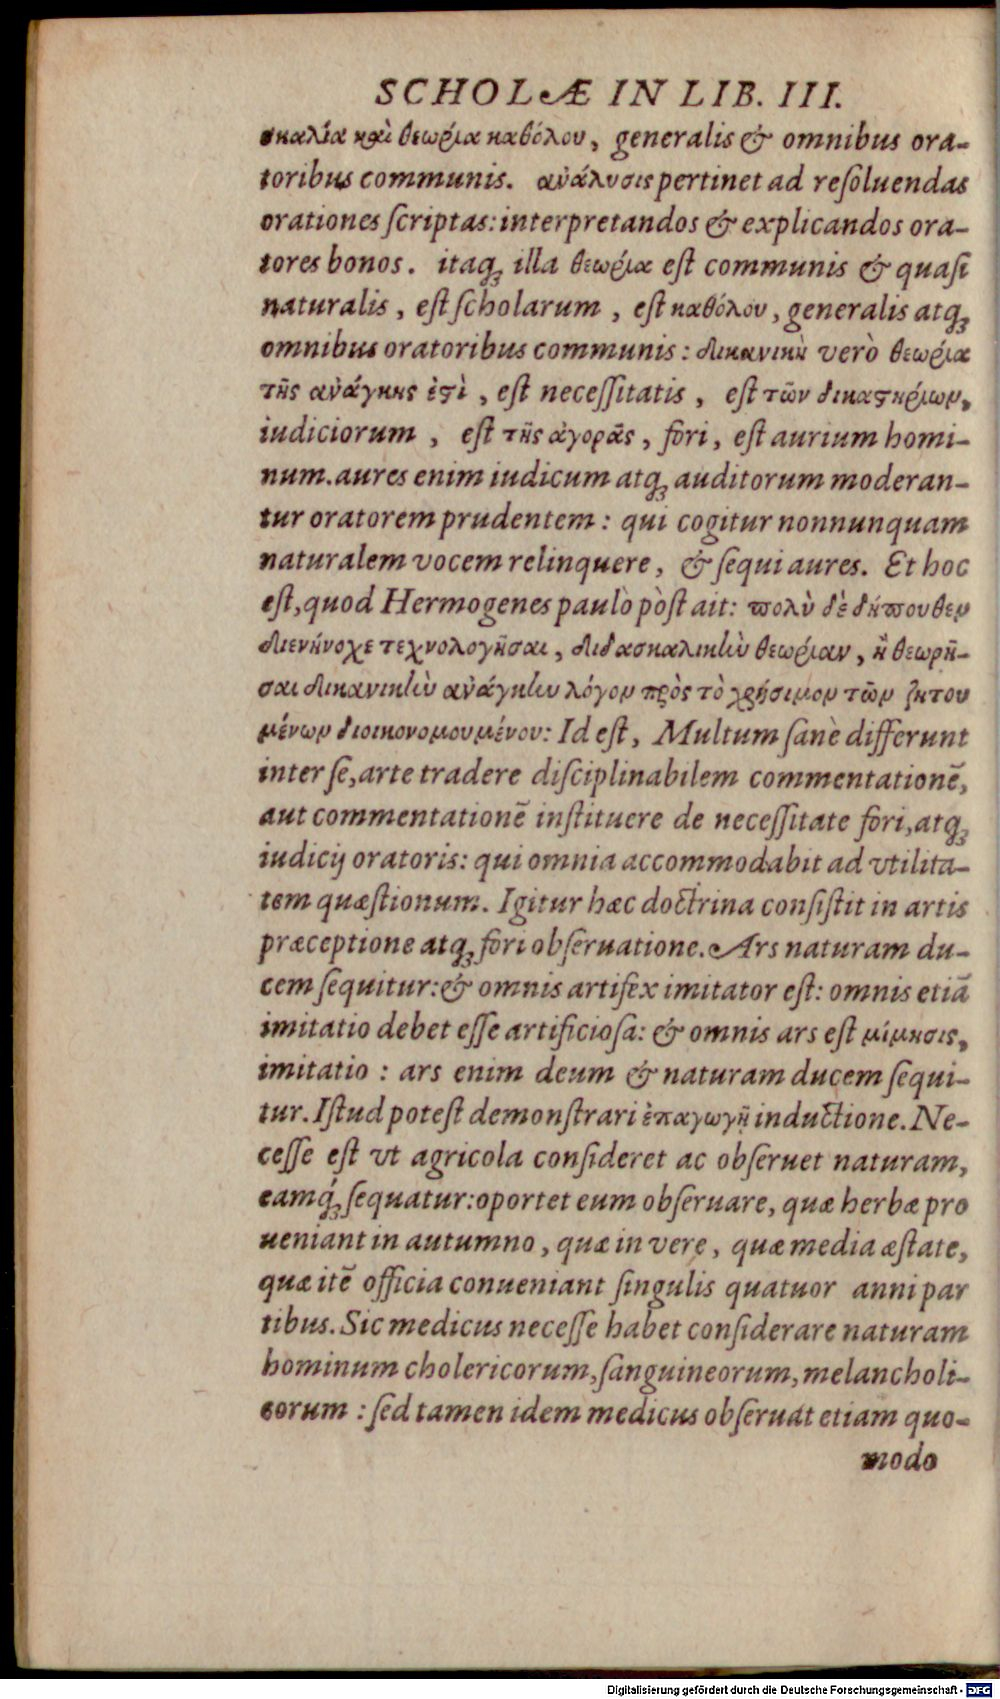 SCHOLÆ IN LIB. III.
σκαλία καὶ θεωρία καθόλου, generalis & omnibus ora-
toribus communis. ἀνάλυσις pertinet ad reſoluendas
orationes ſcriptas: interpretandos & explicandos ora-
tores bonos. itaq; illa θεωρία eſt communis & quaſi
naturalis, eſt ſcholarum, eſt καθόλου, generalis atq;
omnibus oratoribus communis: δικανικὴ verò θεωρία
τῆς ἀνάγκης ἐϛὶ, eſt neceſſitatis, eſt τῶν δικαϛηρίων,
iudiciorum, eſt τῆς ἀγορᾶς, fori, eſt aurium homi-
num. aures enim iudicum atq; auditorum moderan-
tur oratorem prudentem: qui cogitur nonnunquam
naturalem vocem relinquere, & ſequi aures. Et hoc
eſt, quod Hermogenes paulò pòſt ait: πολὺ δὲ δήπουθεν
διενήνοχε τεχνολογῆσαι, διδασκαλικὴν θεωρίαν, ἢ θεωρῆ-
σαι δικανικὴν ἀνάγκην λόγον πρὸς τὸ χρήσιμον τῶν ζητου
μένων διοικονομουμένου: Id eſt, Multum ſanè differunt
inter ſe, arte tradere diſciplinabilem commentationē,
aut commentationē inſtituere de neceſſitate fori, atq;
iudicij oratoris: qui omnia accommodabit ad vtilita-
tem quæſtionum. Igitur hæc doctrina conſiſtit in artis
præceptione atq; fori obſeruatione. Ars naturam du-
cem ſequitur: & omnis artifex imitator eſt: omnis etiā
imitatio debet eſſe artificioſa: & omnis ars eſt μίμησις,
imitatio: ars enim deum & naturam ducem ſequi-
tur. Iſtud poteſt demonſtrari ἐπαγωγῇ inductione. Ne-
ceſſe eſt vt agricola conſideret ac obſeruet naturam,
eamq́; ſequatur: oportet eum obſeruare, quæ herbæ pro
ueniant in autumno, quæ in vere, quæ media æſtate,
quæ itē officia conueniant ſingulis quatuor anni par
tibus. Sic medicus neceſſe habet conſiderare naturam
hominum cholericorum, ſanguineorum, melancholi-
corum: ſed tamen idem medicus obſeruat etiam quo-
modo
Digitalisierung gefördert durch die Deutsche Forschungsgemeinschaft - DFG